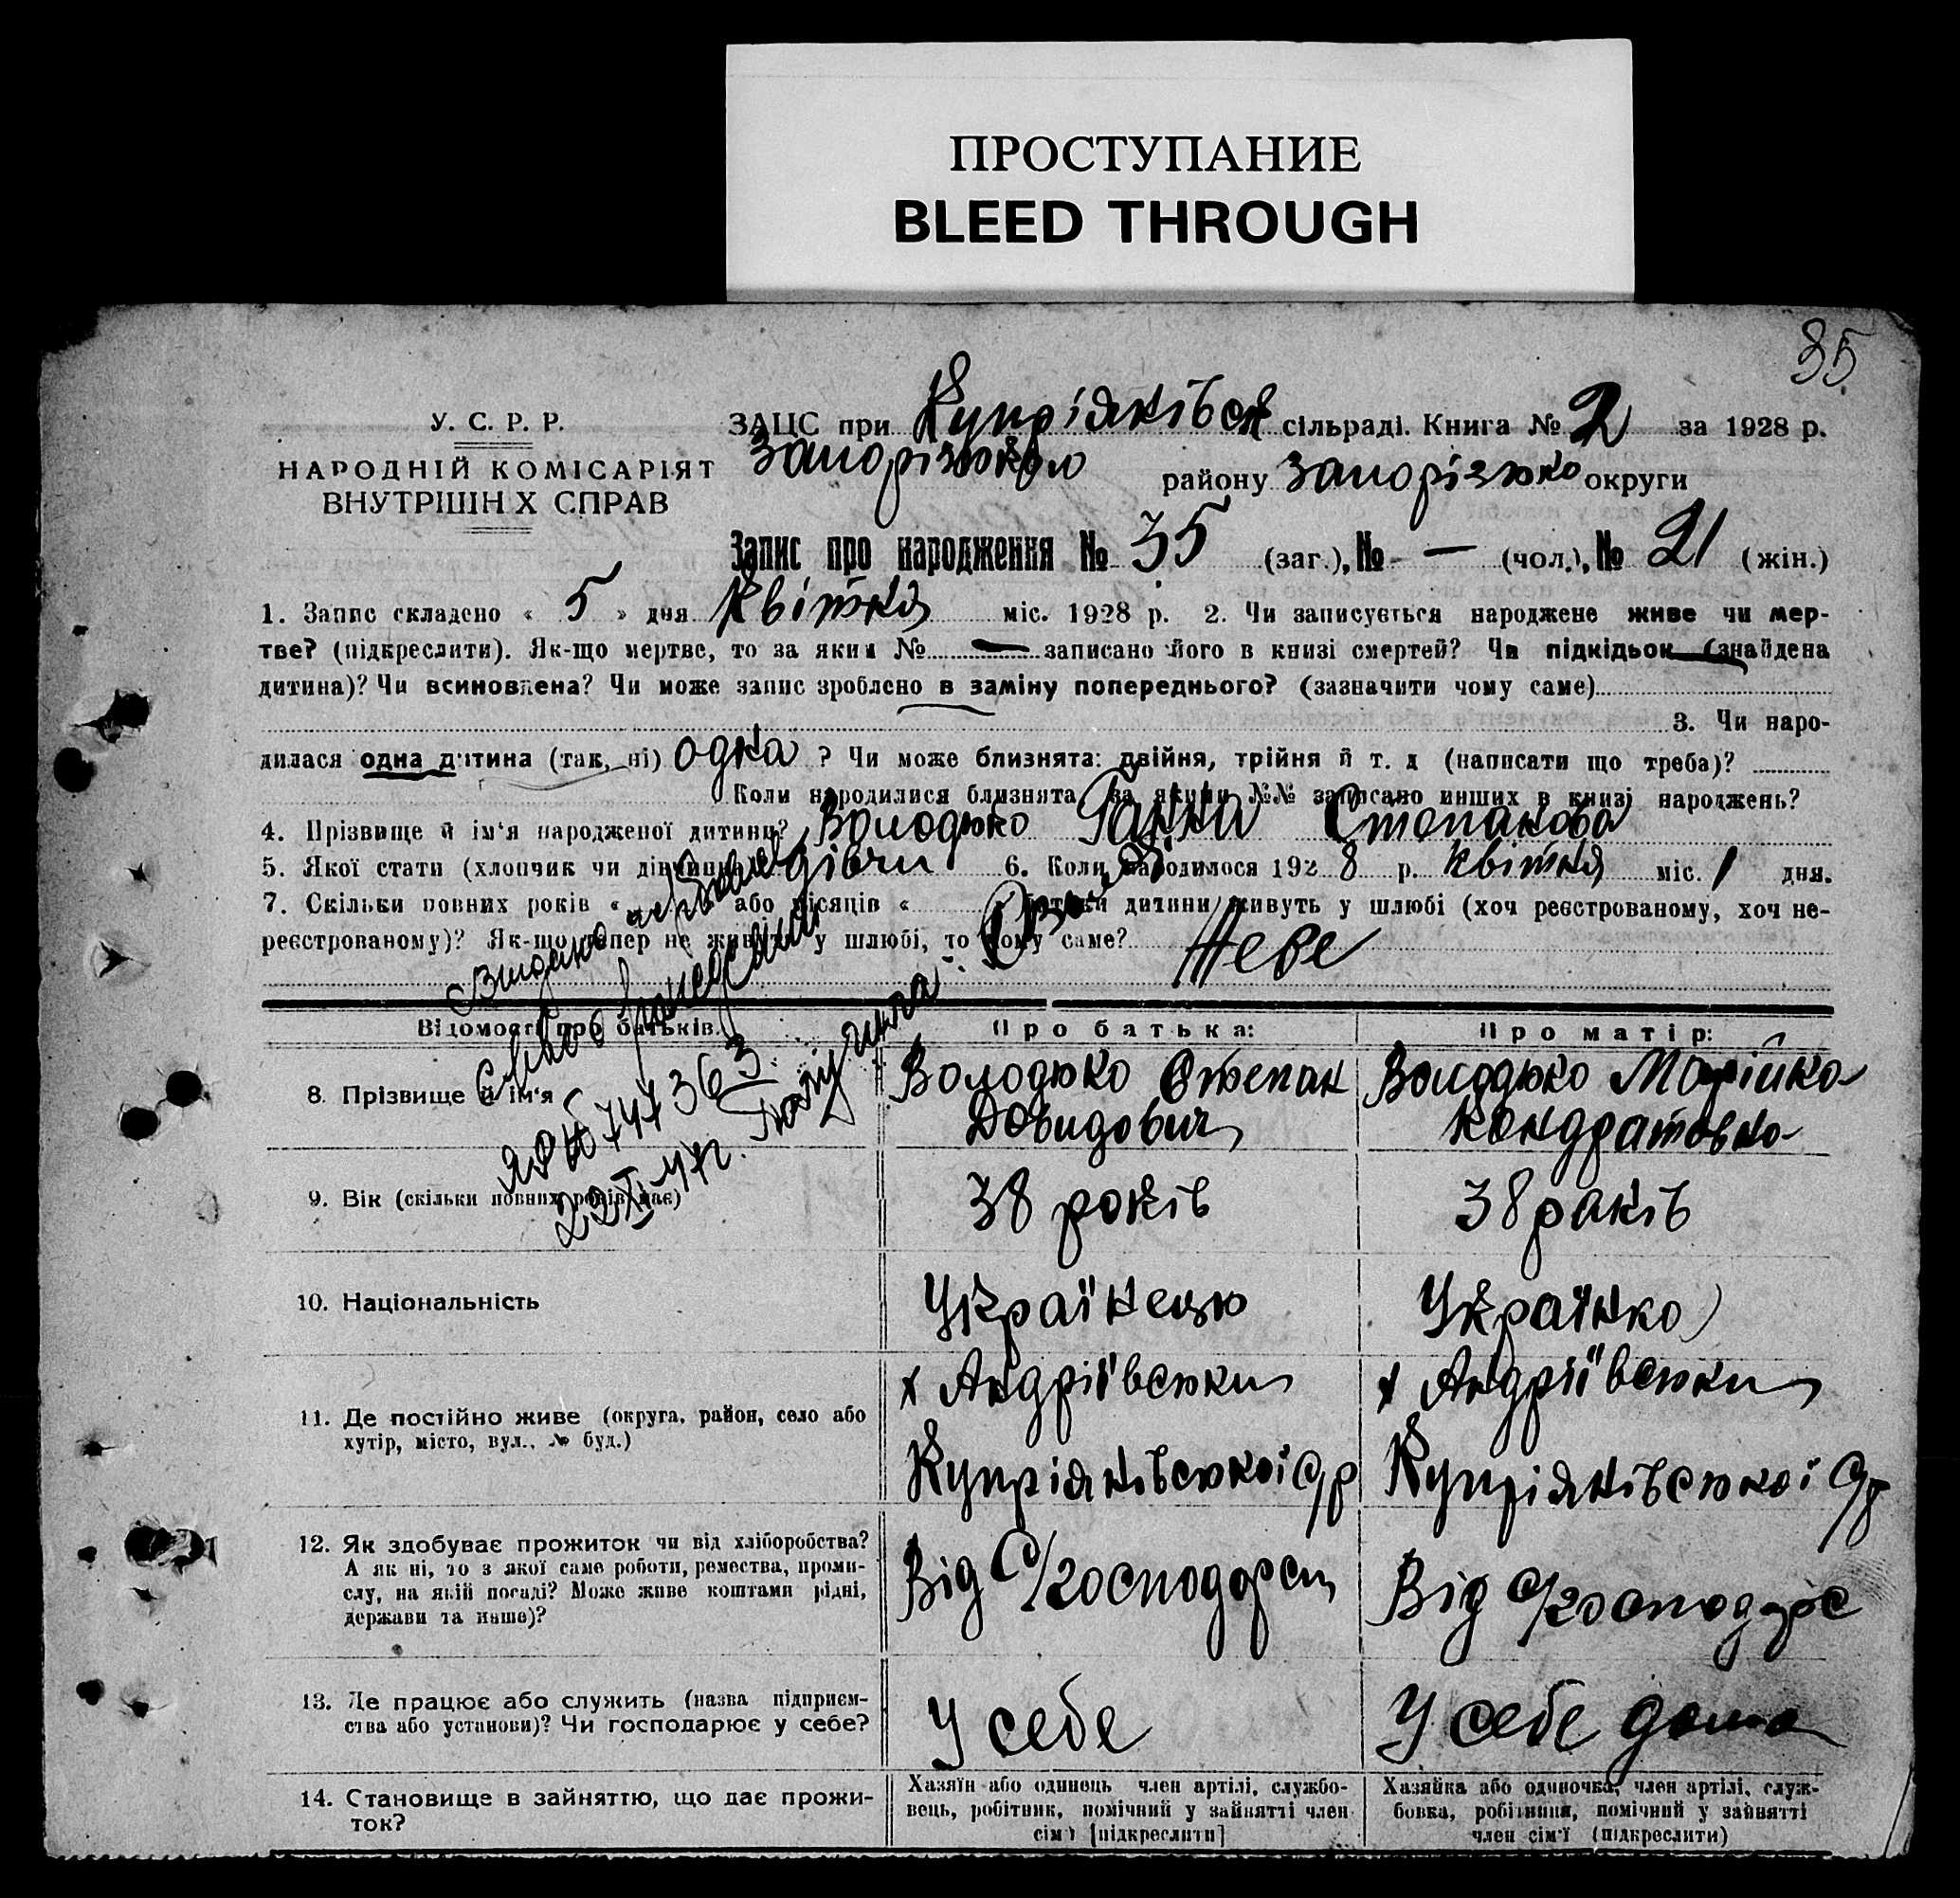 ПРОСТУПАНИЕ
BLEED THROUGH
35
У. С. Р. Р.
НАРОДНІЙ КОМІСАРІЯТ
ВНУТРІШН Х СПРАВ
ЗАЦС при Купріянівськ сільраді. Книга № 2 за 1928 р.
району Запоріжько округи
Запис про народження № 35 (заг.), № — (чол.), № 21 (жін.)
1. Запис складено « 5 » дня Квітня міс. 1928 р. 2. Чи записується народжене живе чи мер-
тве? (підкреслити). Як-що мертве, то за яким № — записано його в книзі смертей? Чи підкідьок (знайдена
дитина)? Чи всиновлена? Чи може запис зроблено в заміну попереднього? (зазначити чому саме)
3. Чи наро-
дилася одна дитина (так, ні) одна ? Чи може близнята: двійня, трійня й т. д (написати що треба)?
Коли народилися близнята, за якими №№ записано инших в книзі народжень?
4. Прізвище й ім'я народженої дитини? Володько Ганна Степанова
5. Якої стати (хлопчик чи дівчинка) дівчи 6. Коли народилося 1928 р. квітня міс. 1 дня.
7. Скільки повних років « або місяців « батьки дитини живуть у шлюбі (хоч реєстрованому, хоч не-
реєстрованому)? Як-що тепер не живуть у шлюбі, то чому саме?
Видано
ЯР № 747363
22/XI-47г. Получила:
Відомості про батьків. Про батька: Про матір:
8. Прізвище й ім'я Володько Степан Давидович Володько Марійка Кондратовна
9. Вік (скільки повних років має) 38 років 38 років
10. Національність Українець Українка
11. Де постійно живе (округа, район, село або
хутір, місто, вул., № буд.)
х Андріївськи х Андріївськи
Купріянівської с/р Купріянівської с/р
12. Як здобуває прожиток чи від хліборобства?
А як ні, то з якої саме роботи, ремества, проми-
слу, на якій посаді? Може живе коштами рідні,
держави та инше)?
Від с/господарст Від с/господарс
13. Де працює або служить (назва підприєм-
ства або установи)? Чи господарює у себе?
У себе У себе дома
14. Становище в зайняттю, що дає прожи-
ток?
Хазяїн або одинець член артілі, службо-
вець, робітник, помічний у зайнятті член
сім'ї [підкреслити]
Хазяйка або одиночка, член артілі, служ-
бовка, робітниця, помічний у зайнятті
член сім'ї (підкреслити)